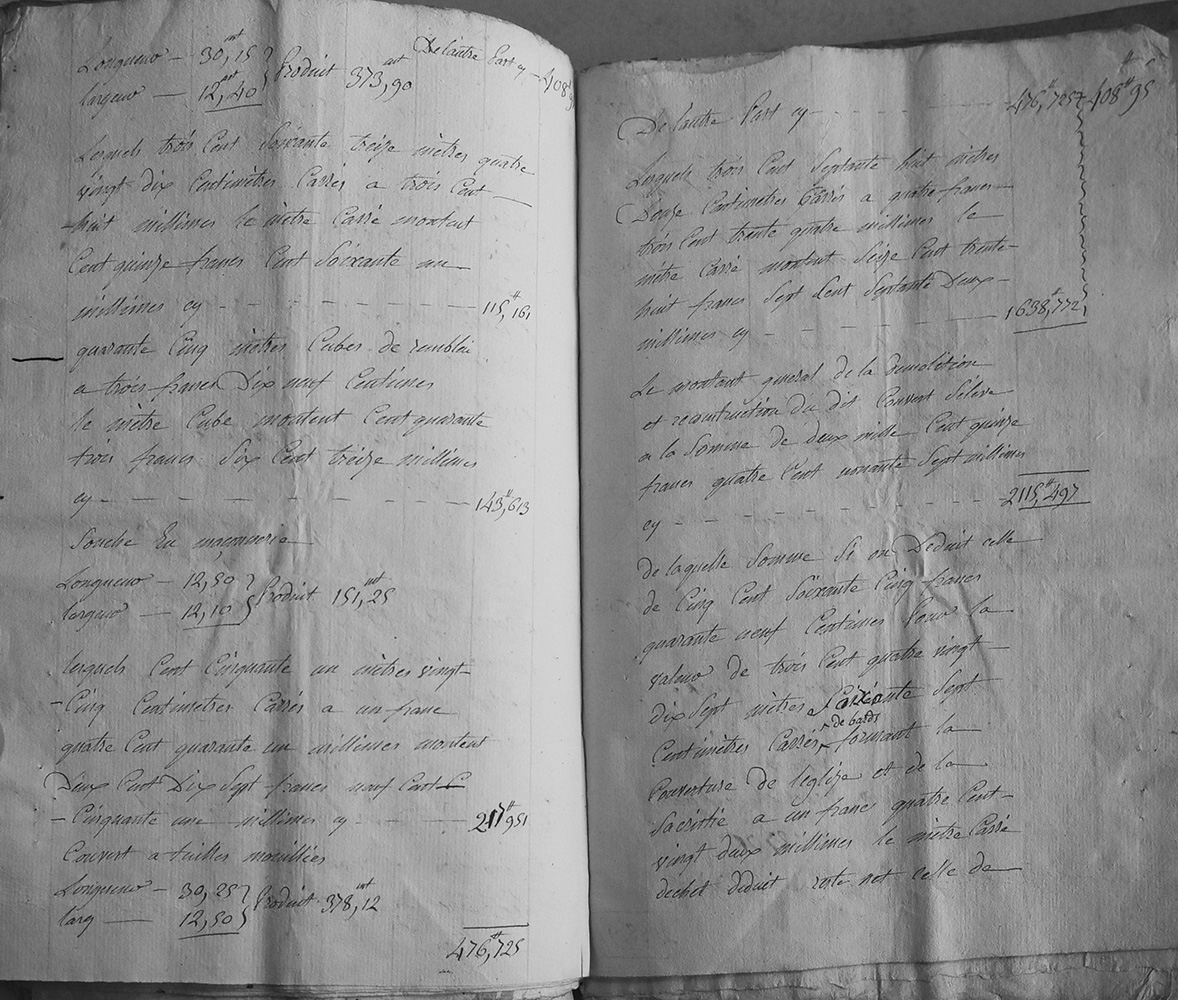 Longueur — 30,15 mt } Produit 373,90 mt
largeur — 12,40 mt
De lautre Part cy — 408
Lesquels trois Cent Soixante treize mètres quatre
vingt dix Centimètres Carrés a trois Cent
huit millimes le mètre Carré montent
Cent quinze francs Cent Soixante un
millimes cy - - - - - - 115,161
quarante Cinq mètres Cubes de remblai
a trois francs Dix neuf Centimes
le mètre Cube montent Cent quarante
trois francs Six Cent treize millimes
cy - - - - - - - 143,613
Souche En maçonnerie
Longueur — 12,50 } Produit 151,25 mt
largeur — 12,10
lesquels Cent Cinquante un mètres vingt
Cinq Centimètres Carrés a un franc
quatre Cent quarante un millimes montent
Deux Cent Dix Sept francs neuf Cent
Cinquante une millimes cy - - - 217,951
Couvert a tuilles mouillées
Longueur — 30,25 } Produit 378,12 mt
larg — 12,50
476,725
De lautre Part cy - - - - - 476,725 408 95
Lesquels trois Cent Septante huit mètres
Douze Centimètres Carrés a quatre francs
trois Cent trente quatre millimes le
mètre Carré montent Seize Cent trente
huit francs Sept Cent Septante Deux
millimes cy - - - - - - 1638,772
Le montant général de la démolition
et reconstruction du dit Couvert S'élève
a la Somme de deux mille Cent quinze
francs quatre Cent nonante Sept millimes
cy - - - - - - 2115,497
de laquelle Somme Si on Déduit celle
de Cinq Cent Soixante Cinq francs
quarante neuf Centimes Pour la
valeur de trois Cent quatre vingt
dix Sept mètres Soixante Sept
Centimètres Carrés de bards formant la
Couverture de léglize et de la
Sacristie a un franc quatre Cent
vingt deux millimes le mètre Carré
dechet déduit reste net celle de